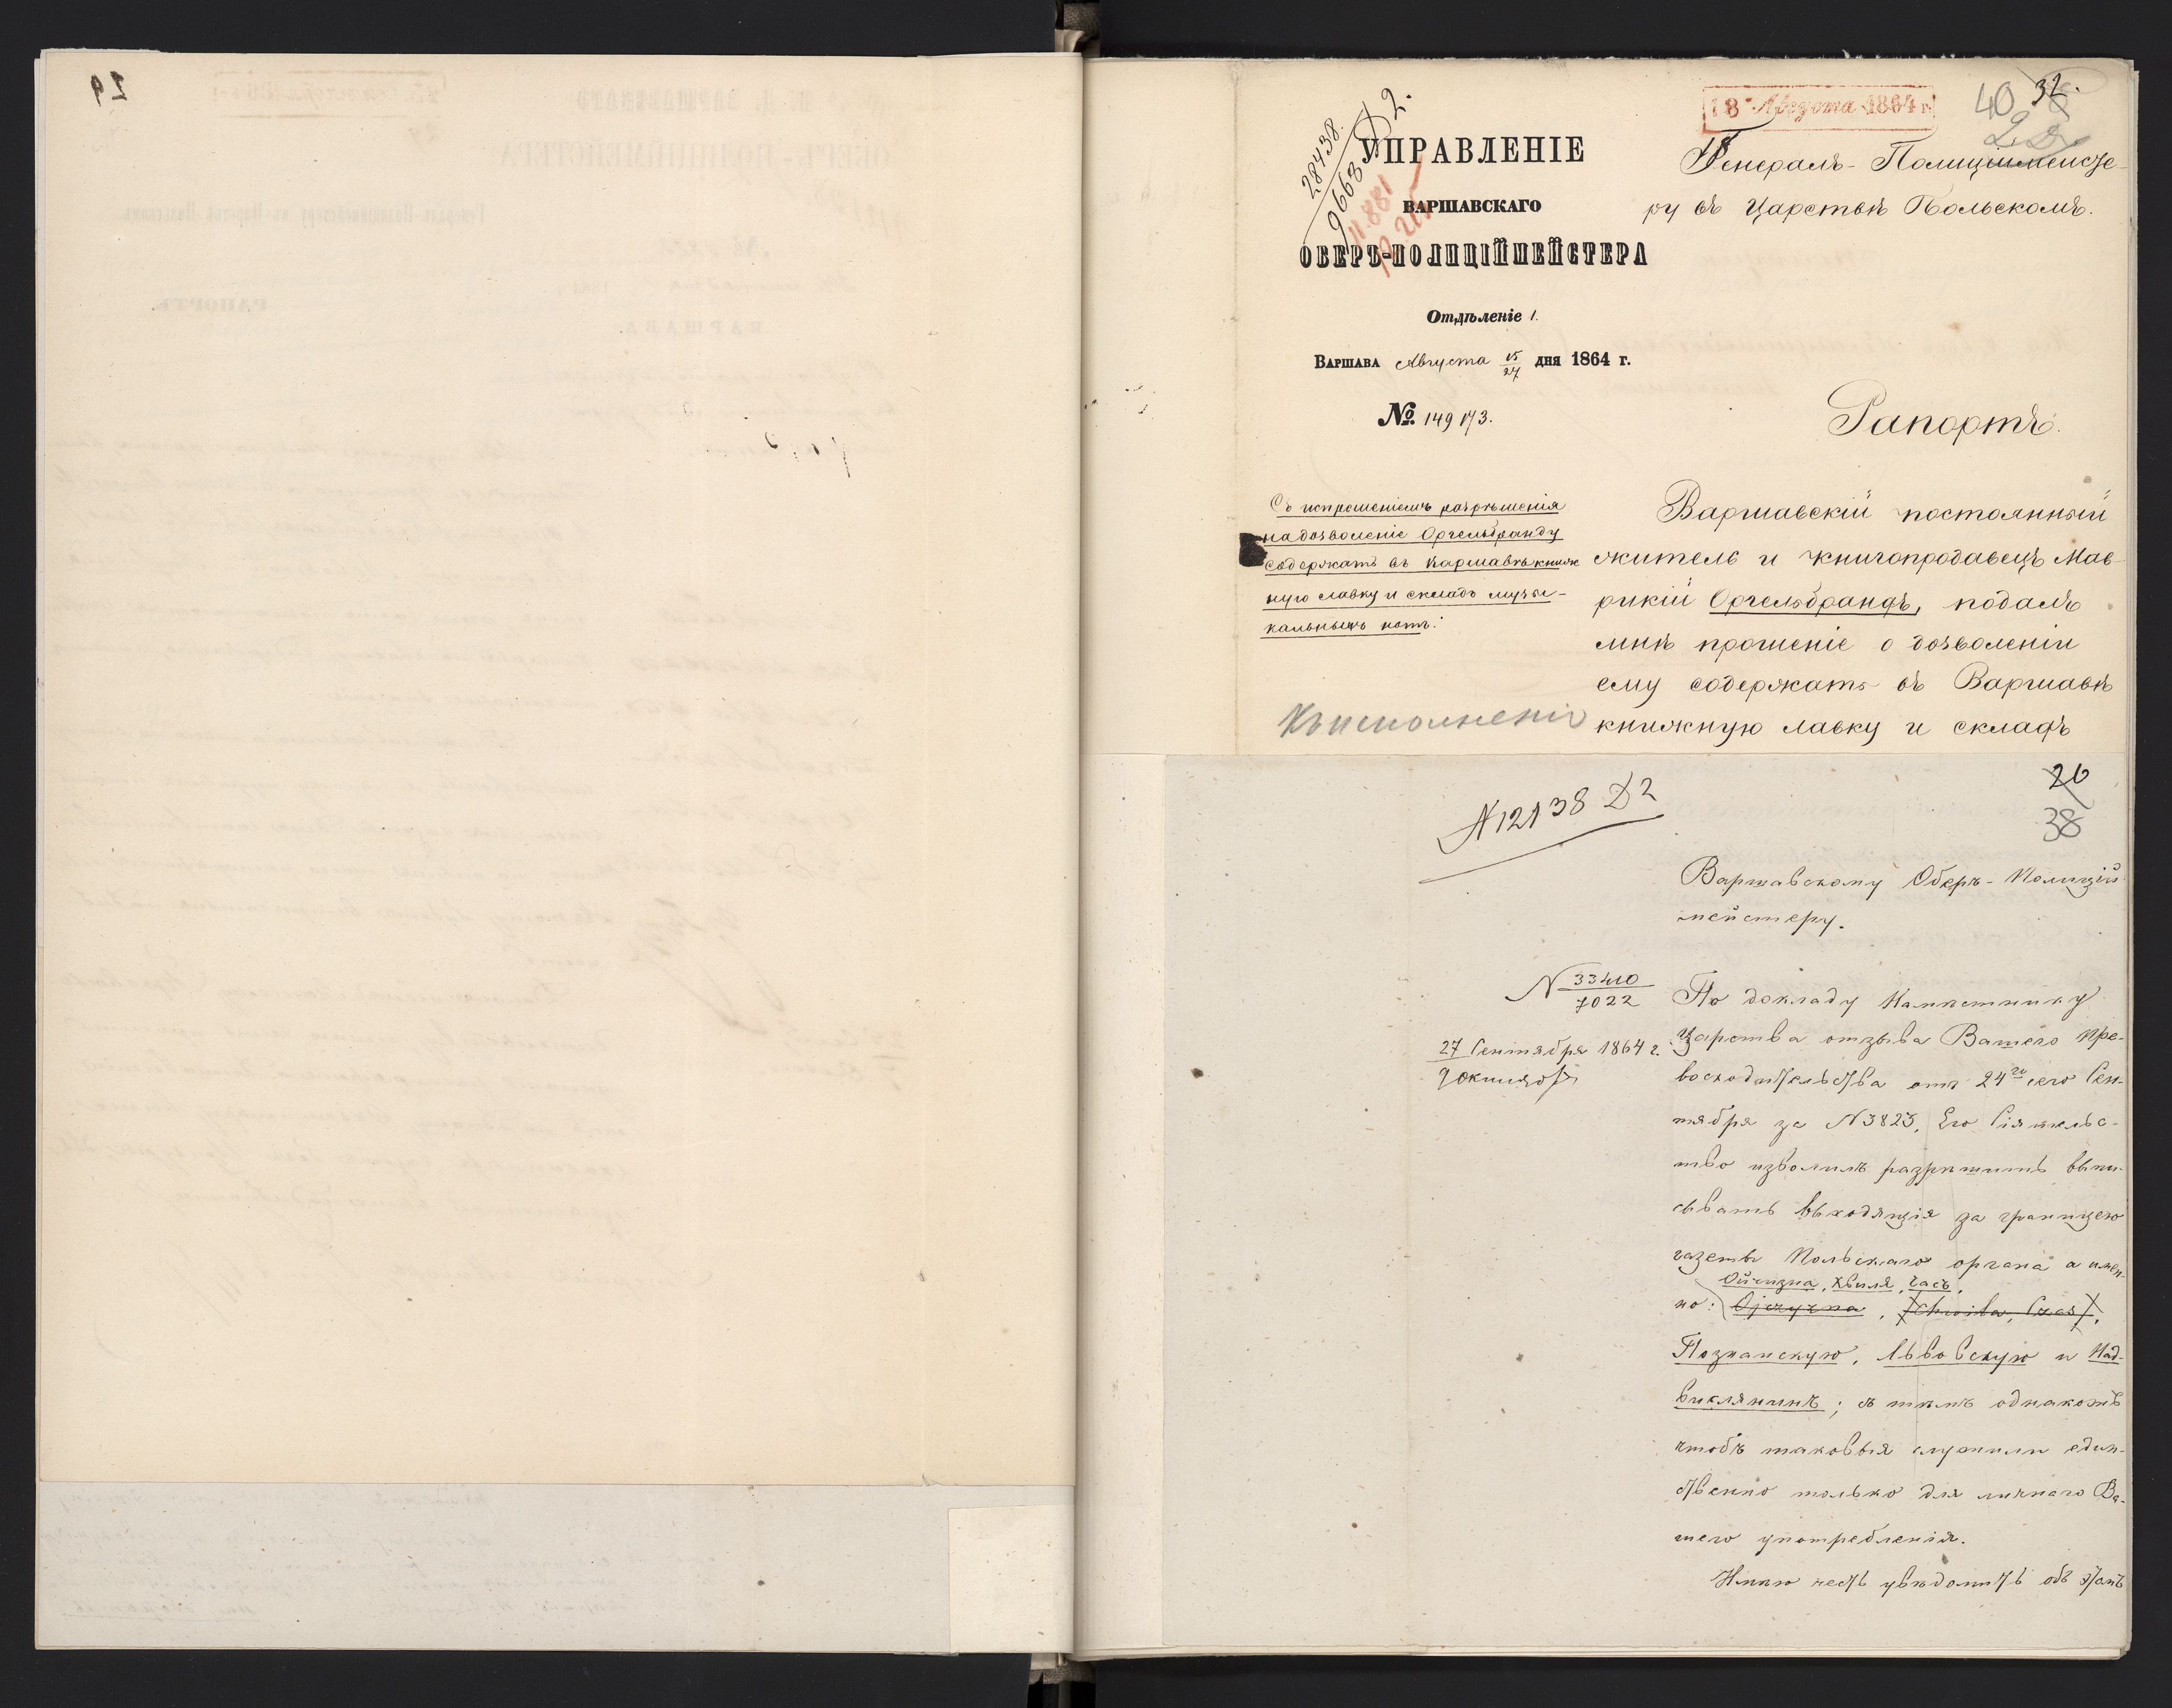 29
18 Августа 1864 г.
32.
40
28438.
9668 Д 2.
11.881
УПРАВЛЕНІЕ
ВАРШАВСКАГО
ОБЕРЪ-ПОЛИЦІЙМЕЙСТЕРА
Отдѣленіе 1.
Варшава Августа 15/27 дня 1864 г.
№ 149173.
Генералъ-Полиціймейсте-
ру въ Царствѣ Польскомъ.
Рапортъ.
Съ испрошеніемъ разрѣшенія
на дозволеніе Оргельбранду
содержать въ Варшавѣ книж
ную лавку и складъ музы-
кальныхъ нотъ.
Къ исполненію
Варшавскій постоянный
житель и книгопродавецъ Мав-
рикій Оргельбрандъ, подалъ
мнѣ прошеніе о дозволеніи
ему содержать въ Варшавѣ
книжную лавку и складъ
N 12138 Д2
26
38
Варшавскому Оберъ-Полицій-
мейстеру.
N 33410
7022
27 Сентября 1864 г.
9 Октября
По докладу Намѣстнику
Царства отзыва Вашего Пре-
восходительства отъ 24го сего Сен-
тября за N 3823, Его Сіятельс-
тво изволилъ разрѣшить выпи-
сывать выходящія за границею
газеты Польскаго органа а имен-
Ойчизна, Хвиля, Часъ,
но: Ojczyzna, Chwila, Czas,
Познанскую, Львовскую и Над-
вислянинъ; съ тѣмъ однакожъ
чтобъ таковыя служили един-
ственно только для личнаго Ва-
шего употребленія.
Имѣю честь увѣдомить объ этомъ